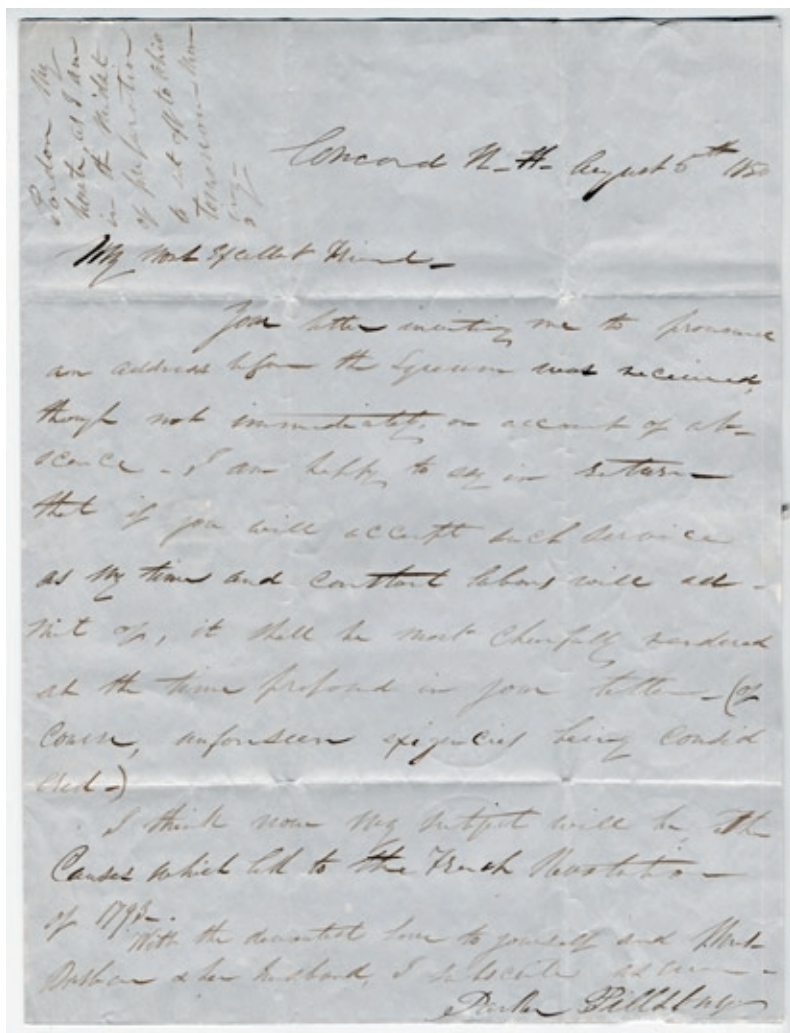 Pardon My
haste, as I am
in the midst
of preparation
to set off to this
Concord N. H. August 5th 1850
My Most Excellent Friend
Your letter inviting me to pronounce
an address before the Lyceum was received,
though not immediately on account of ab-
scence. I am happy to say in return
that if you will accept such service
as my time and constant labors will ad-
mit of, it shall be most cheerfully rendered
at the time proposed in your letter. (of
course, unforseen exigencies being consid
ered.)
I think now my subject will be, the
Causes which led to the French Revolution
of 1793.
With the devoutest love to yourself and
& her husband, I subscribe as ever
Parker Pillsbury